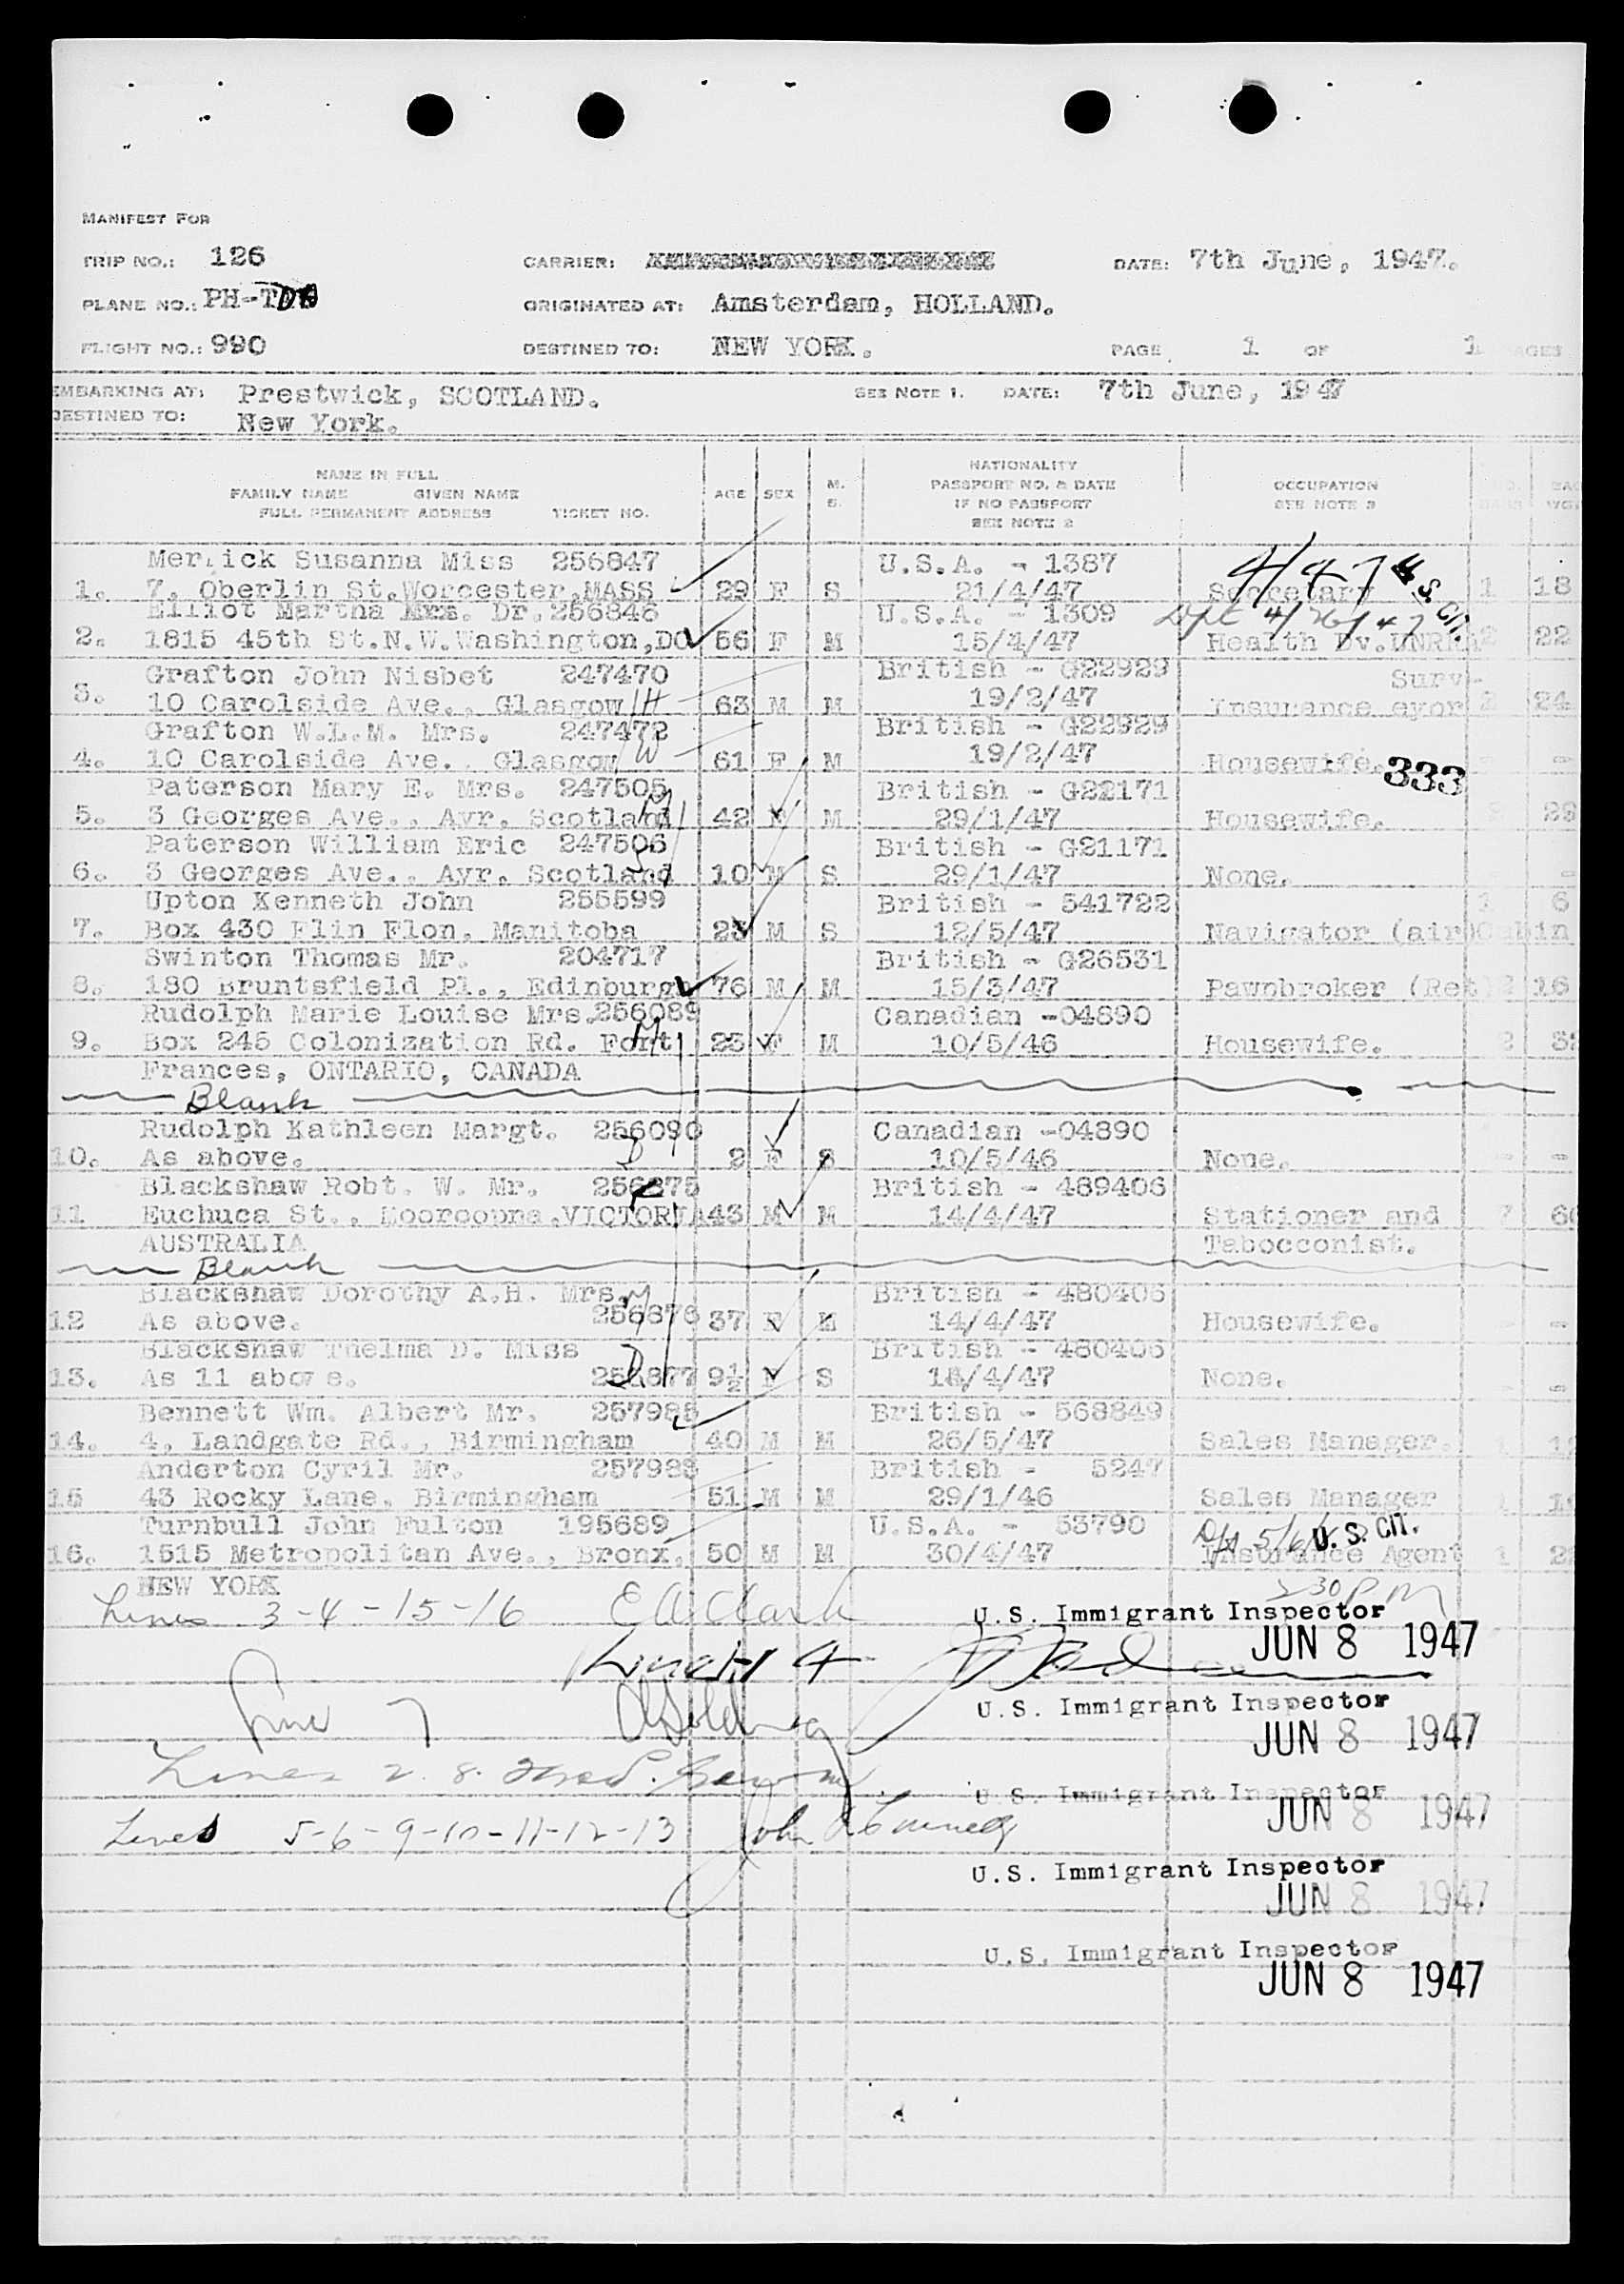 MANIFEST FOR
TRIP NO.: 126 CARRIER: DATE: 7th June, 1947.
PLANE NO.: PH-TD ORIGINATED AT: Amsterdam, HOLLAND.
FLIGHT NO.: 990 DESTINED TO: NEW YORK. PAGE 1 OF 1 PAGES
EMBARKING AT: Prestwick, SCOTLAND. SEE NOTE 1. DATE: 7th June, 1947
DESTINED TO: New York.
NAME IN FULL
FAMILY NAME GIVEN NAME
FULL PERMANENT ADDRESS TICKET NO.
AGE SEX M. S.
NATIONALITY
PASSPORT NO. & DATE
IF NO PASSPORT
SEE NOTE 2
OCCUPATION
SEE NOTE 3
Merrick Susanna Miss 256847 U.S.A. - 1387
1. 7, Oberlin St.Worcester,MASS 29 F S 21/4/47 Secretary 1 18
U.S. CIT.
Elliot Martha Mrs. Dr.256846 U.S.A. - 1309 Dpt 4/26/47
2. 1815 45th St.N.W.Washington,DC 56 F M 15/4/47 Health Dv.UNRRA 2 22
Grafton John Nisbet 247470 British - G22929 Surv-
3. 10 Carolside Ave., Glasgow H 63 M M 19/2/47 Insurance eyor 2 24
Grafton W.L.M. Mrs. 247472 British - G22929
4. 10 Carolside Ave., Glasgow W 61 F M 19/2/47 Housewife. - -
333
Paterson Mary E. Mrs. 247505 British - G22171
5. 3 Georges Ave., Ayr, Scotland M 42 F M 29/1/47 Housewife. 29
Paterson William Eric 247506 British - G21171
6. 3 Georges Ave., Ayr, Scotland S 10 M S 29/1/47 None. -
Upton Kenneth John 255599 British - 541722 1 6
7. Box 430 Flin Flon, Manitoba 23 M S 12/5/47 Navigator (air)Cabin
Swinton Thomas Mr. 204717 British - G26531
8. 180 Bruntsfield Pl., Edinburgh 76 M M 15/3/47 Pawnbroker (Ret) 2 16
Rudolph Marie Louise Mrs.256089 Canadian -04890
9. Box 245 Colonization Rd. Fort M 23 F M 10/5/46 Housewife. 2
Frances, ONTARIO, CANADA
Blank
Rudolph Kathleen Margt. 256090 Canadian -04890
10. As above. D 2 F S 10/5/46 None. - -
Blackshaw Robt. W. Mr. 256875 British - 489406
11 Euchuca St., Mooroopna,VICTORIA 43 M M 14/4/47 Stationer and 7
AUSTRALIA Tabocconist.
Blank
Blackshaw Dorothy A.H. Mrs. M British - 480406
12 As above. 256876 37 F M 14/4/47 Housewife. - -
Blackshaw Thelma D. Miss British - 480406
13. As 11 above. D 256877 9½ F S 14/4/47 None. - -
Bennett Wm. Albert Mr. 257985 British - 568849
14. 4, Landgate Rd., Birmingham 40 M M 26/5/47 Sales Manager. 1
Anderton Cyril Mr. 257983 British - 5247
15 43 Rocky Lane, Birmingham 51 M M 29/1/46 Sales Manager 1
Turnbull John Fulton 195689 U.S.A. - 53790 U.S. CIT.
16. 1515 Metropolitan Ave., Bronx, 50 M M 30/4/47 Insurance Agent 1
NEW YORK 230 PM
Lines 3-4-15-16 E A Clark U.S. Immigrant Inspector
JUN 8 1947
Line 14
U.S. Immigrant Inspector
Line 7 JUN 8 1947
Lines 2. 8.
U.S. Immigrant Inspector
JUN 8 1947
Lines 5-6-9-10-11-12-13 John
U.S. Immigrant Inspector
JUN 8 1947
U.S. Immigrant Inspector
JUN 8 1947